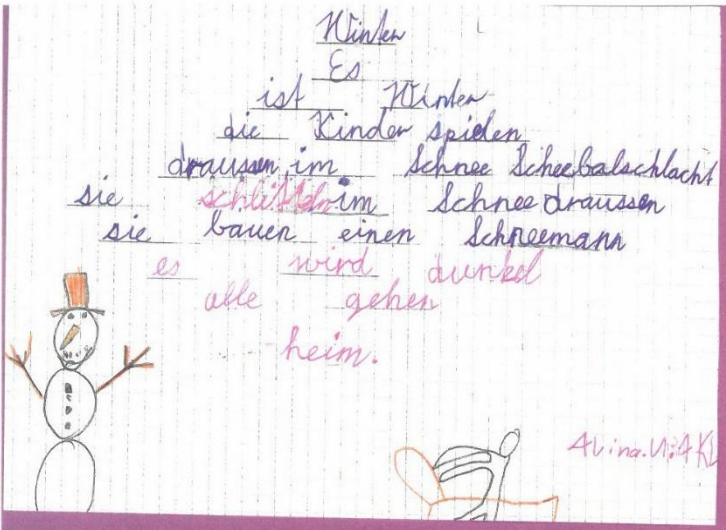 Winter
Es
ist Winter
die Kinder spielen
draussen im Schnee Scheebalschlacht
sie schlitteln im Schnee draussen
sie bauen einen Schneemann
es wird dunkel
alle gehen
heim.
Alina.U:4Kl